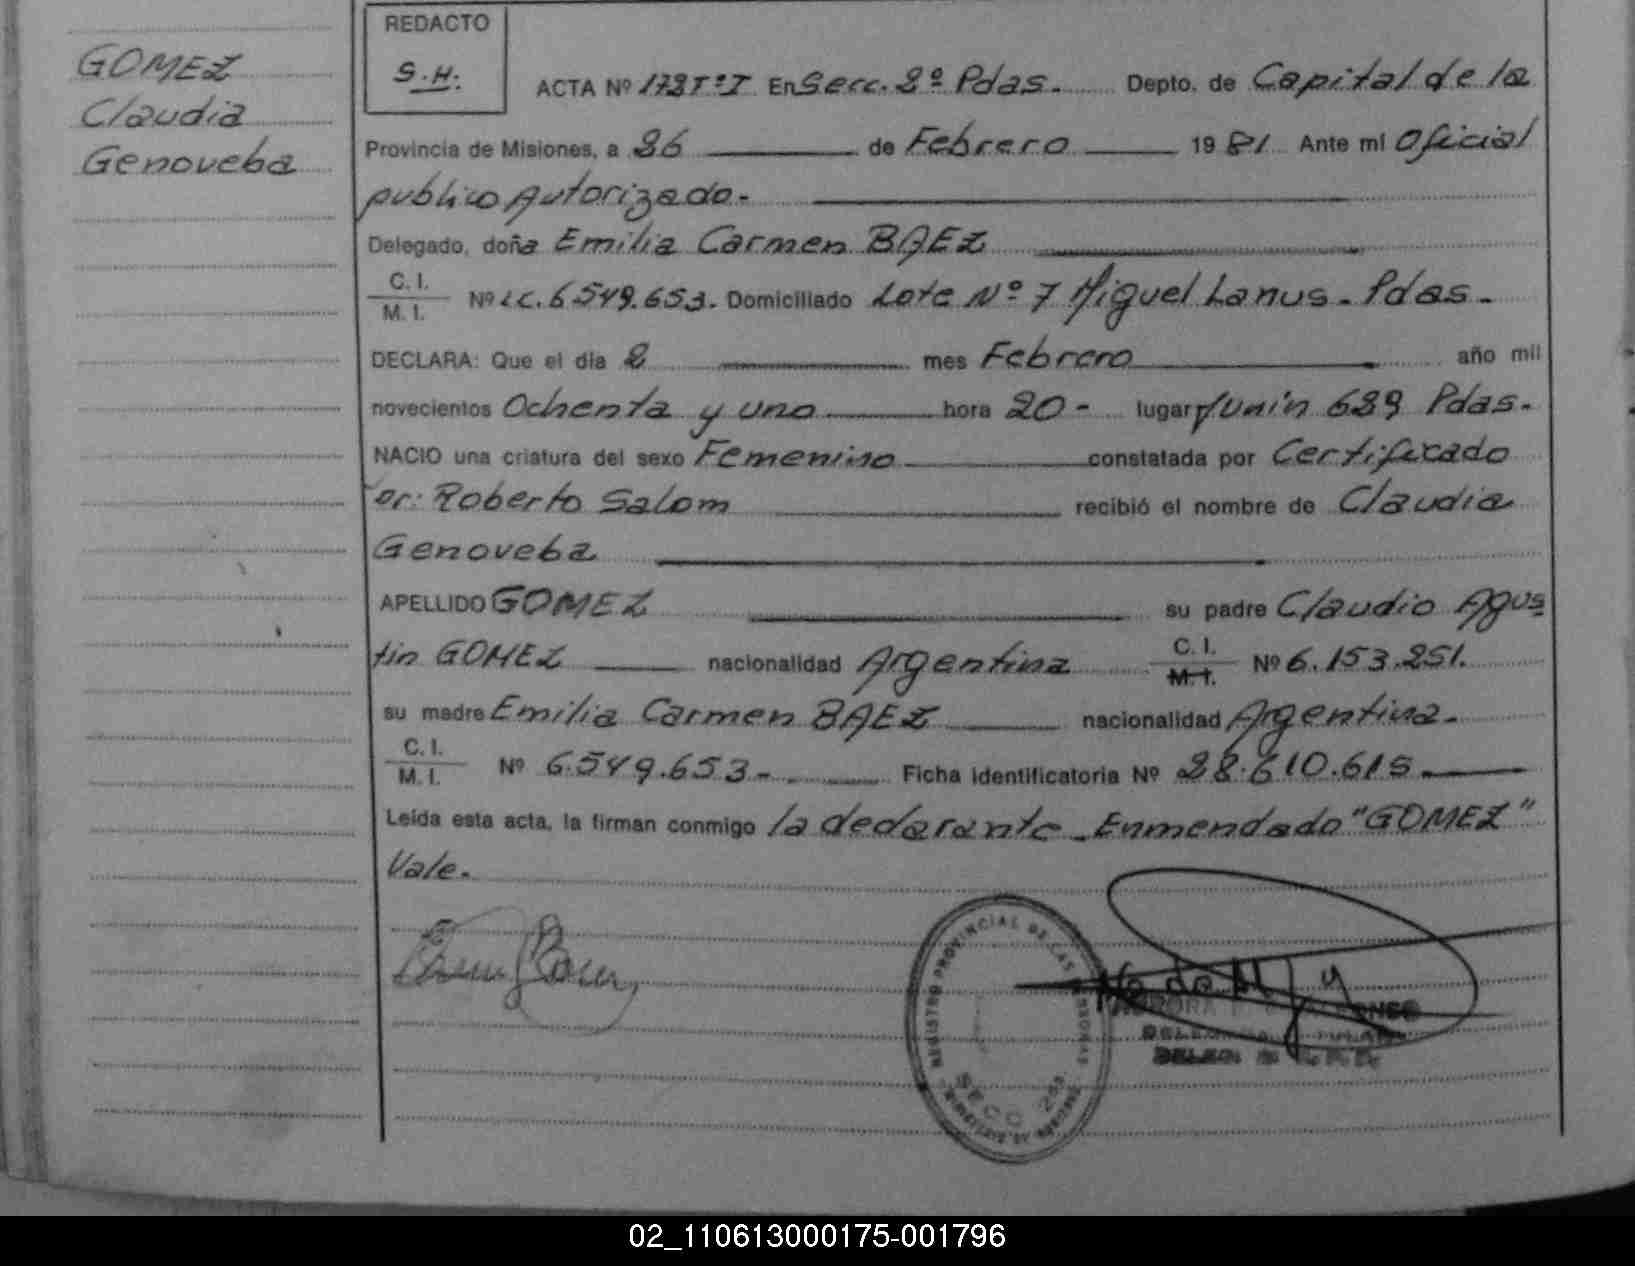 GOMEZ
Claudia
Genoveba
REDACTO
S.H.
ACTA Nº 178 TºI En Secc. 2º Pdas. Depto. de Capital de la
Provincia de Misiones, a 26 de Febrero 1981 Ante mi Oficial
publico Autorizado.
Delegado, doña Emilia Carmen BAEZ
C. I.
M. I.
Nº LC. 6.549.653. Domiciliado Lote Nº 7 Miguel Lanus. Pdas.
DECLARA: Que el día 2 mes Febrero año mil
novecientos Ochenta y uno hora 20 - lugar Junin 689 Pdas.
NACIO una criatura del sexo Femenino constatada por Certificado
Dr: Roberto Salom recibió el nombre de Claudia
Genoveba
APELLIDO GOMEZ su padre Claudio Agus
tin GOMEZ nacionalidad Argentina C. I.
M. I. Nº 6.153.251.
su madre Emilia Carmen BAEZ nacionalidad Argentina.
C. I.
M. I.
Nº 6.549.653- Ficha identificatoria Nº 28.610.615
Leída esta acta, la firman conmigo la declarante. Enmendado "GOMEZ"
Vale.
REGISTRO PROVINCIAL DE LAS PERSONAS
SECC 253
02_110613000175-001796